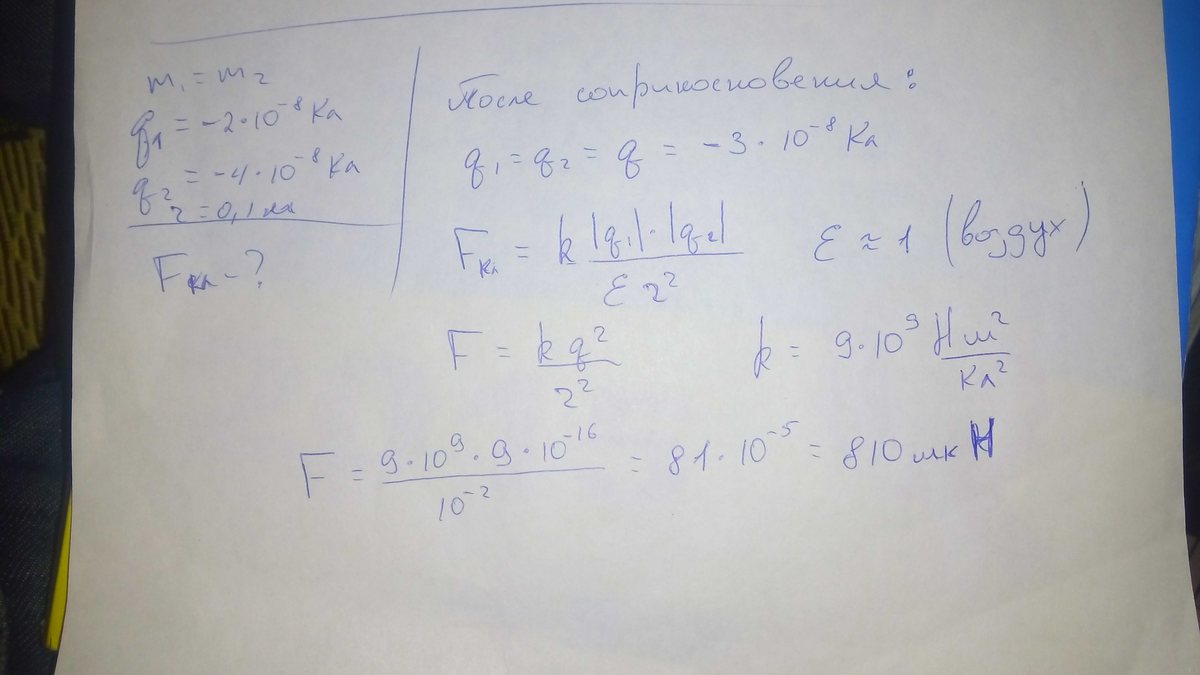 m₁ = m₂
q₁ = -2·10⁻⁸ Кл
q₂ = -4·10⁻⁸ Кл
r = 0,1 м
Fкл - ?
После соприкосновения:
q₁ = q₂ = q = -3·10⁻⁸ Кл
Fкл = k |q₁|·|q₂| / ε r² ε ≈ 1 (воздух)
F = k q² / r² k = 9·10⁹ Н м² / Кл²
F = 9·10⁹·9·10⁻¹⁶ / 10⁻² = 81·10⁻⁵ = 810 мкН